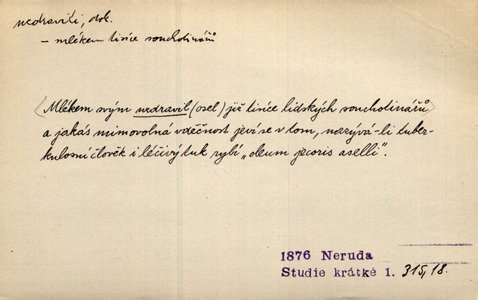 uzdraviti, dok.
– mlékem tisíce souchotinářů
(Mlékem svým uzdravil (osel) již tisíce lidských souchotinářů
a jakás mimovolná vděčnost jeví se v tom, nazývá-li tuber-
kulosní člověk i léčivý tuk rybí „oleum jecoris aselli".
1876 Neruda
Studie krátké 1. 315,18.